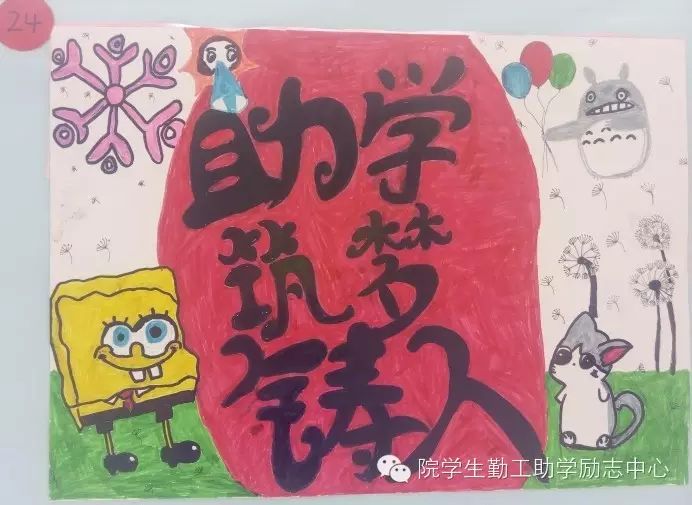 24
助学
筑梦
铸人
院学生勤工助学励志中心